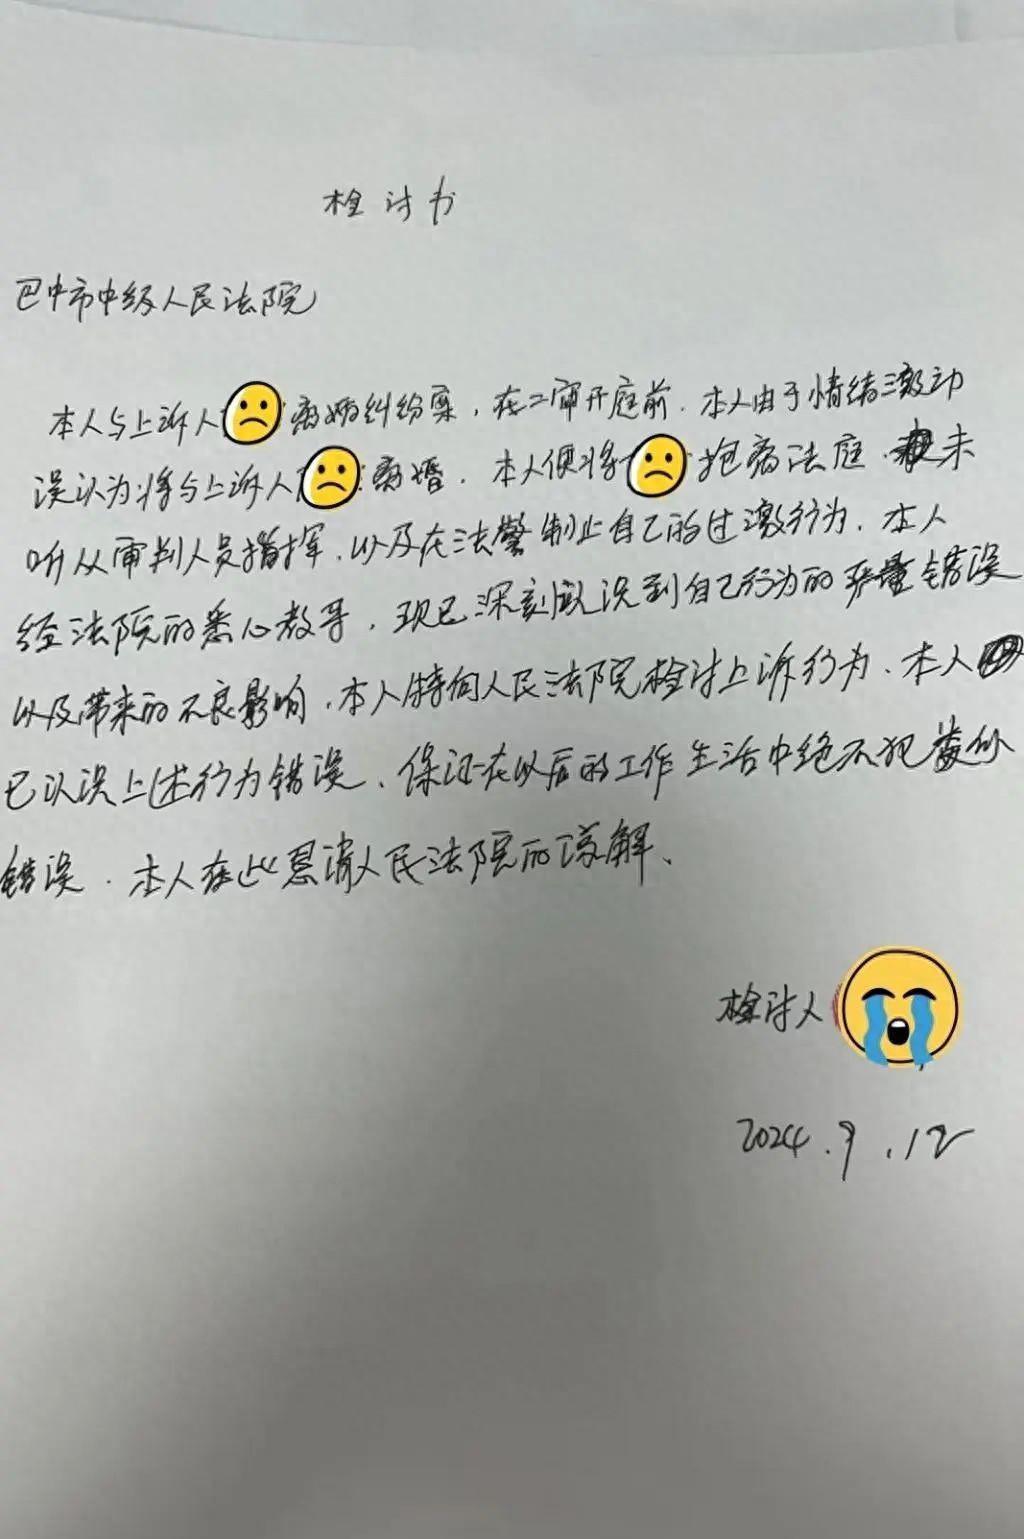 检讨书
巴中市中级人民法院
本人与上诉人离婚纠纷案，在二审开庭前．本人由于情绪激动
误认为将与上诉人离婚．本人便将抱离法庭．未
听从审判人员指挥．以及在法警制止自己的过激行为．本人
经法院的悉心教导，现已深刻认识到自己行为的严重错误
以及带来的不良影响．本人特向人民法院检讨上诉行为．本人
已认识上述行为错误．保证在以后的工作生活中绝不犯类似
错误．本人在此恳请人民法院的谅解．
检讨人
2024.9.12